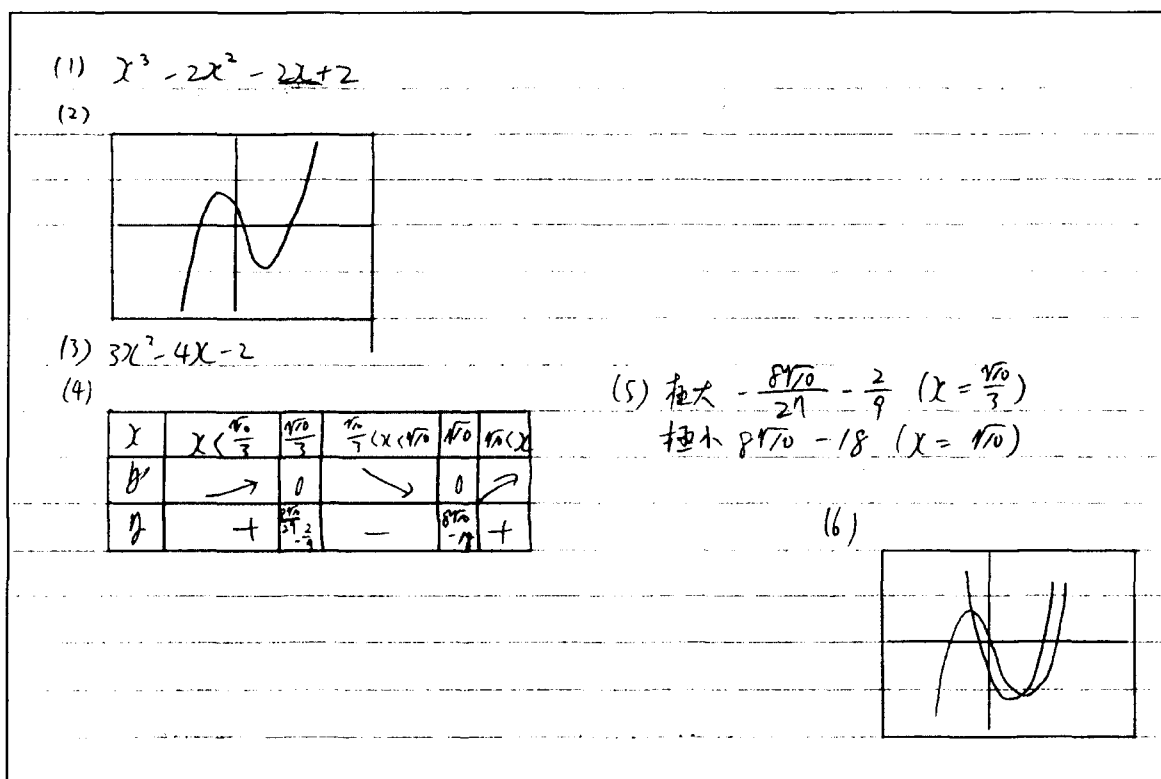 (1) x³ - 2x² - 2x + 2
(2)
(3) 3x² - 4x - 2
(4)
x x<√10/3 √10/3 √10/3<x<√10 √10 √10<x
y' ↗ 0 ↘ 0 ↗
y + - 8√10-18 +
(5) 極大 -8√10/27 - 2/9 (x = √10/3)
極小 8√10 - 18 (x = √10)
(6)